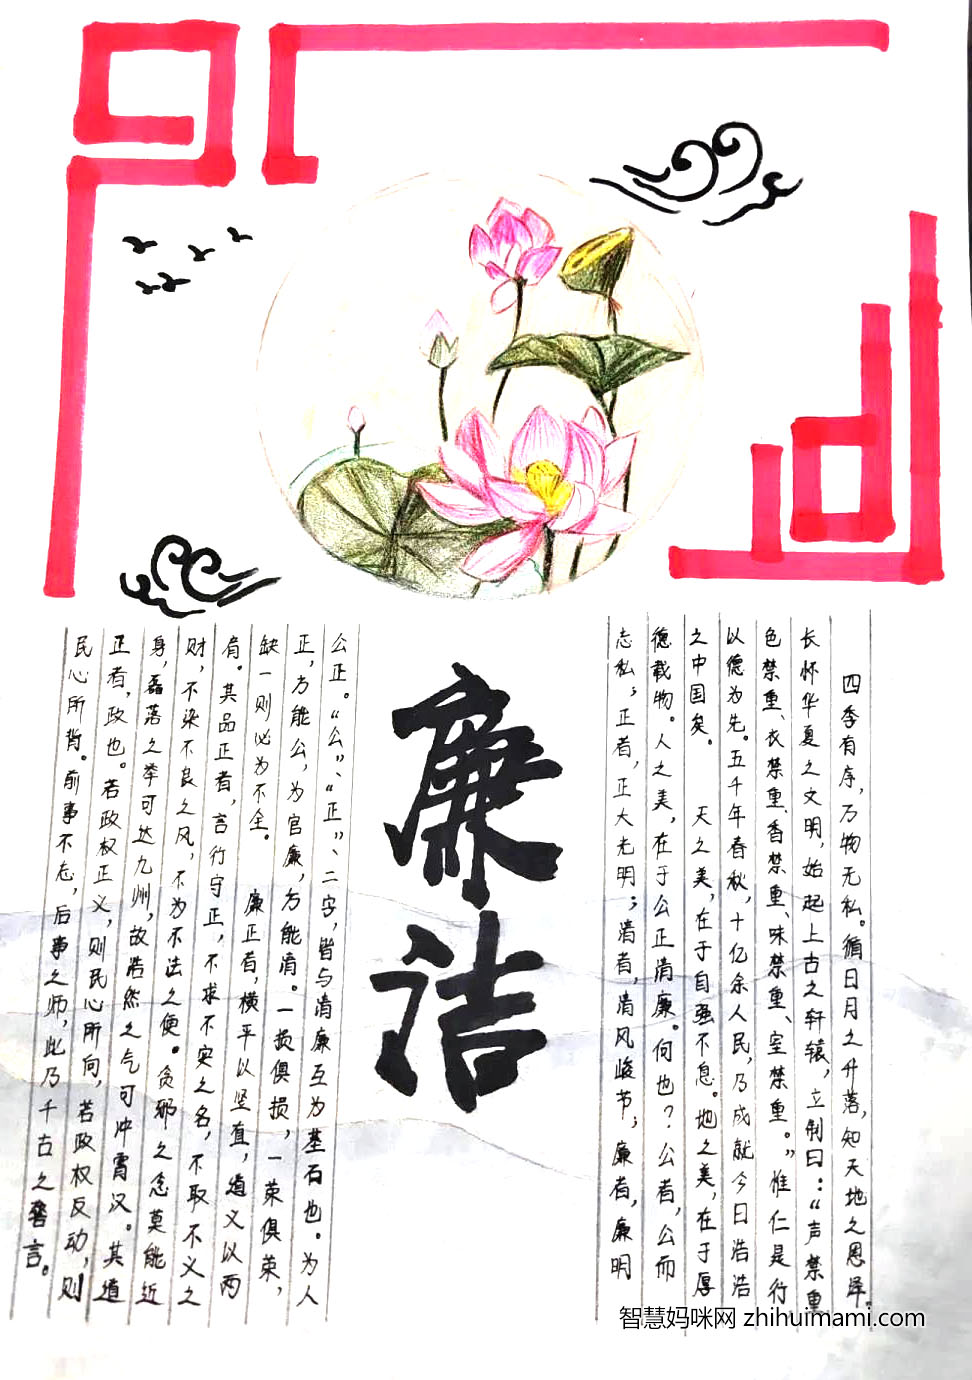 四季有序，万物无私。循日月之升落，知天地之恩泽。
长怀华夏之文明，始起上古之轩辕，立制曰：“声禁重
色禁重、衣禁重、香禁重、味禁重、室禁重。”惟仁是行
以德为先。五千年春秋，十亿余人民，乃成就今日浩浩
之中国矣。 天之美，在于自强不息。地之美，在于厚
德载物。人之美，在于公正清廉。何也？公者，公而
忘私；正者，正大光明；清者，清风峻节；廉者，廉明
廉洁
公正。“公”、“正”、二字，皆与清廉互为基石也。为人
正，方能公，为官廉，方能清。一损俱损，一荣俱荣，
缺一则必为不全。 廉正者，横平以竖直，道义以两
肩。其品正者，言行守正，不求不实之名，不取不义之
财，不染不良之风，不为不法之便。贪邪之念莫能近
身，磊落之举可达九州，故浩然之气可冲霄汉。其道
正者，政也。若政权正义，则民心所向，若政权反动，则
民心所背。前事不忘，后事之师，此乃千古之警言。
智慧妈咪网 zhihuimami.com